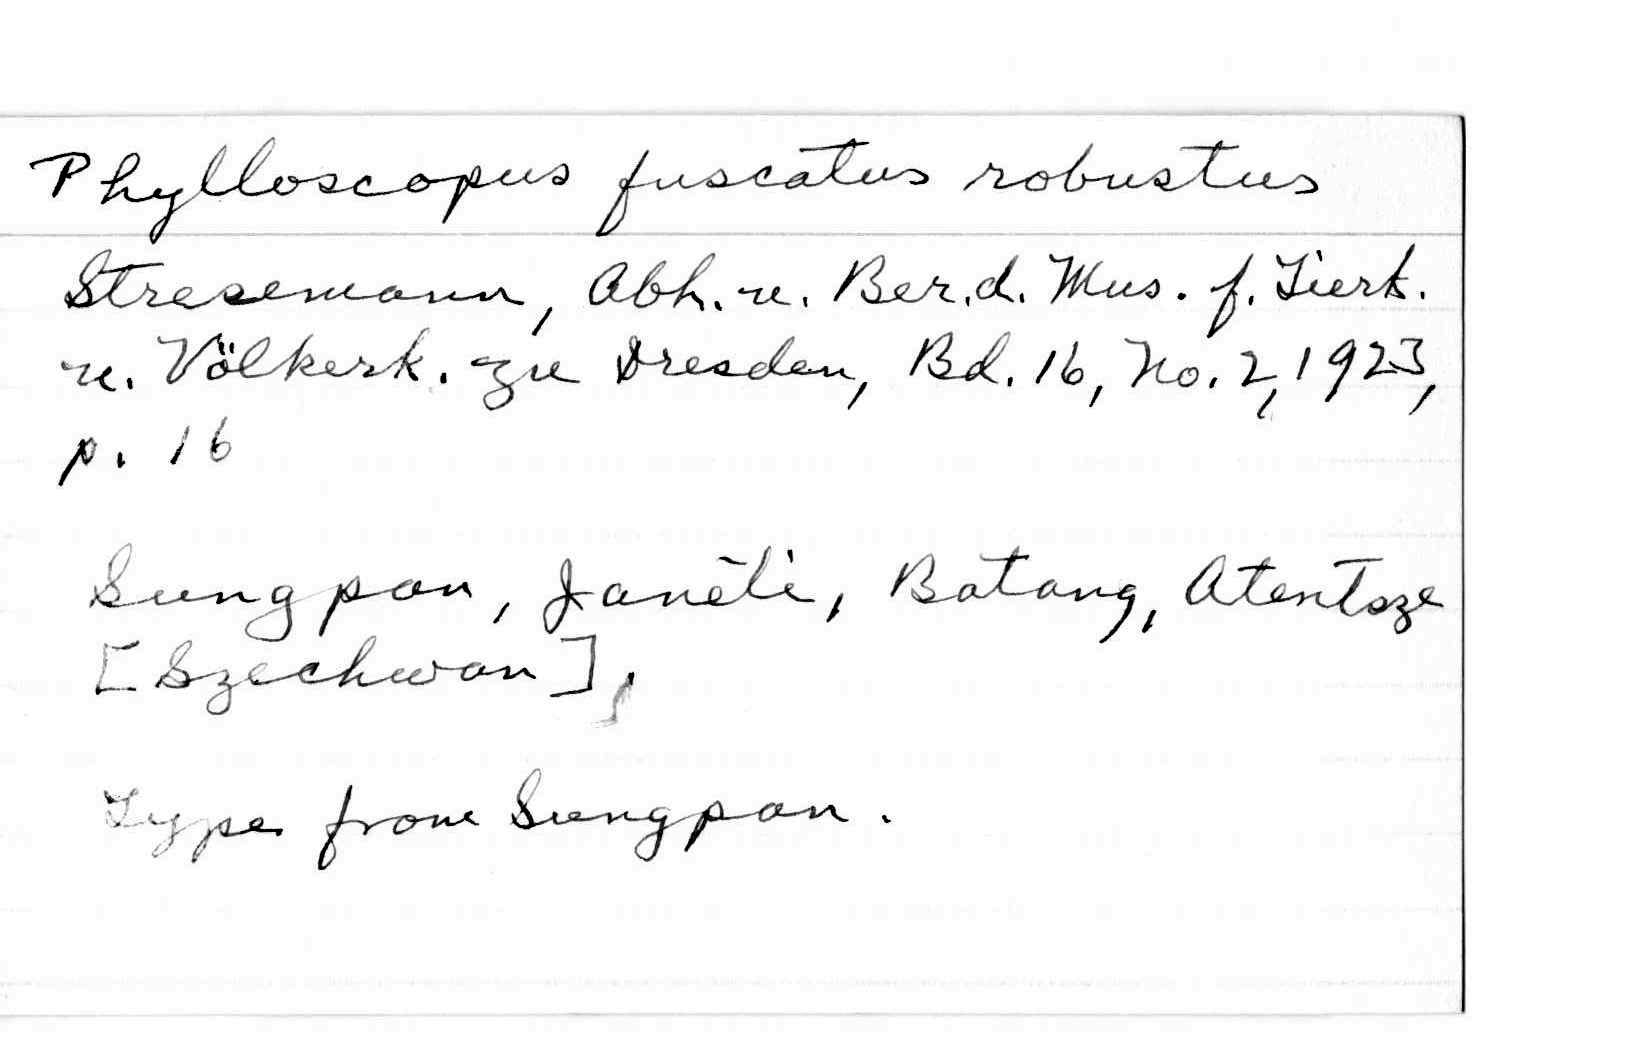 Phylloscopus fuscatus robustus
Stresemann, Abh. u. Ber. d. Mus. f. Tierk.
u. Völkerk. zu Dresden, Bd. 16, No. 2, 1923,
p. 16
Sungpan, Janēti, Batang, Atentsze
[Szechwan],
Type from Sungpan.